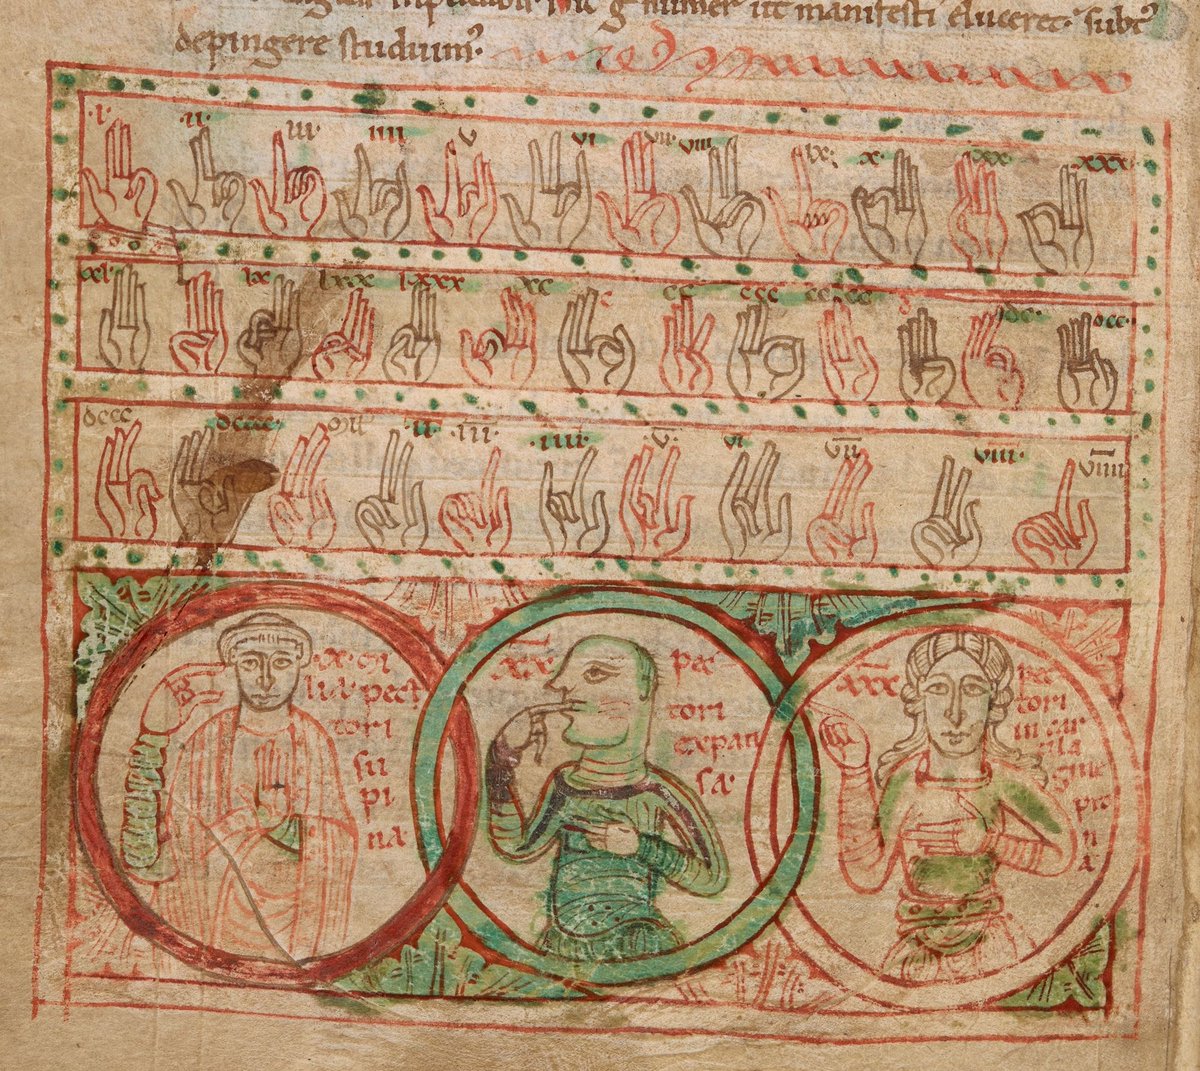 ut manifesti eluceret· subt
depingere studuim
·i· ·ii· ·iii· iiii v vi vii· viii ix· ·x· xx xxx
xl lx lxx lxxx xc c cc ccc cccc dc dcc·
dccc dcccc ·ii· ·iii· ·iiii· ·v· vi vii viii· viiii
·x·
pect
tori
su
pi
na
xx pec
tori
expan
sa·
xxx pec
tori
in car
tila
gine
pro
na